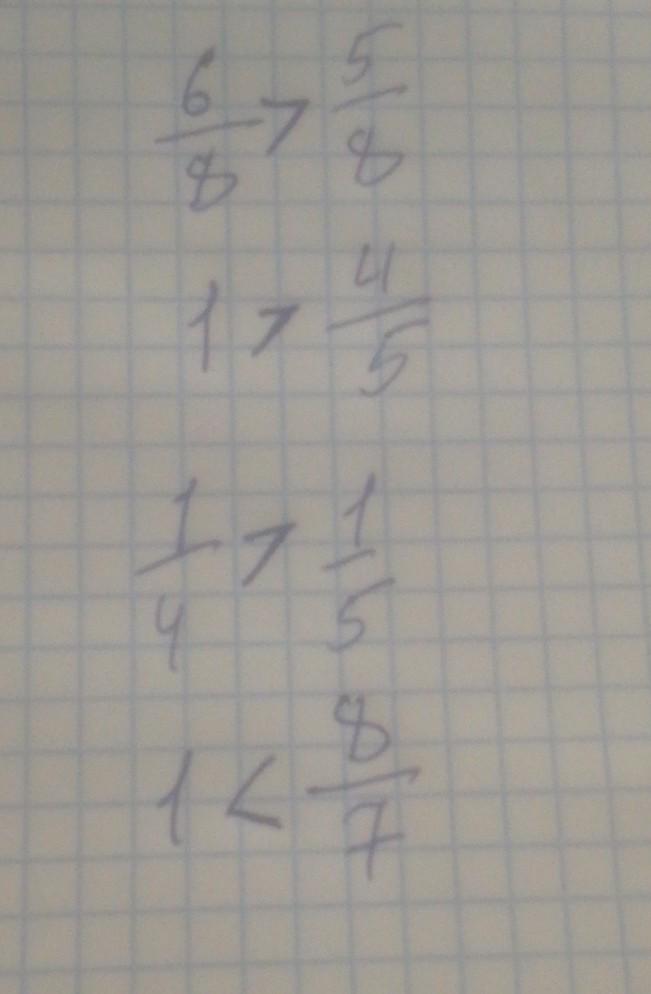 6/8 > 5/8
1 > 4/5
1/4 > 1/5
1 < 8/7